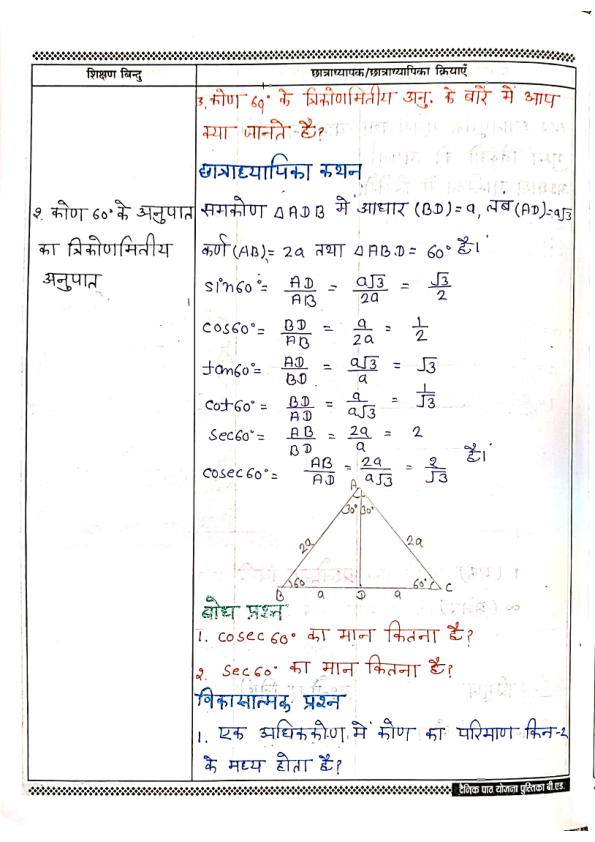 शिक्षण बिन्दु
छात्राध्यापक/छात्राध्यापिका क्रियाएँ
3. कोण 60° के त्रिकोणमितीय अनु. के बारे में आप
क्या जानते है?
छात्राध्यापिका कथन
२. कोण 60° के अनुपात
का त्रिकोणमितीय
अनुपात्
समकोण △ADB मे आधार (BD)= a, लब (AD)=a√3
कर्ण (AB)= 2a तथा △ABD = 60° है।
sin60° = AD/AB = a√3/2a = √3/2
cos60° = BD/AB = a/2a = 1/2
tan60° = AD/BD = a√3/a = √3
cot60° = BD/AD = a/a√3 = 1/√3
sec60° = AB/BD = 2a/a = 2
cosec60° = AB/AD = 2a/a√3 = 2/√3 है।
A
30° 30°
2a 2a
60 60°
B a D a C
बोध प्रश्न
1. cosec 60° का मान कितना है?
२. sec 60° का मान कितना है?
विकासात्मक प्रश्न
1. एक अधिककोण में कोण का परिमाण किन-२
के मध्य होता है?
दैनिक पाठ योजना पुस्तिका बी.एड.